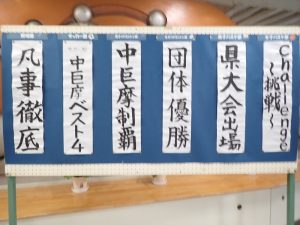 challenge
~挑戦~
県大会出場
団体優勝
中巨摩制覇
中巨摩ベスト4
凡事徹底